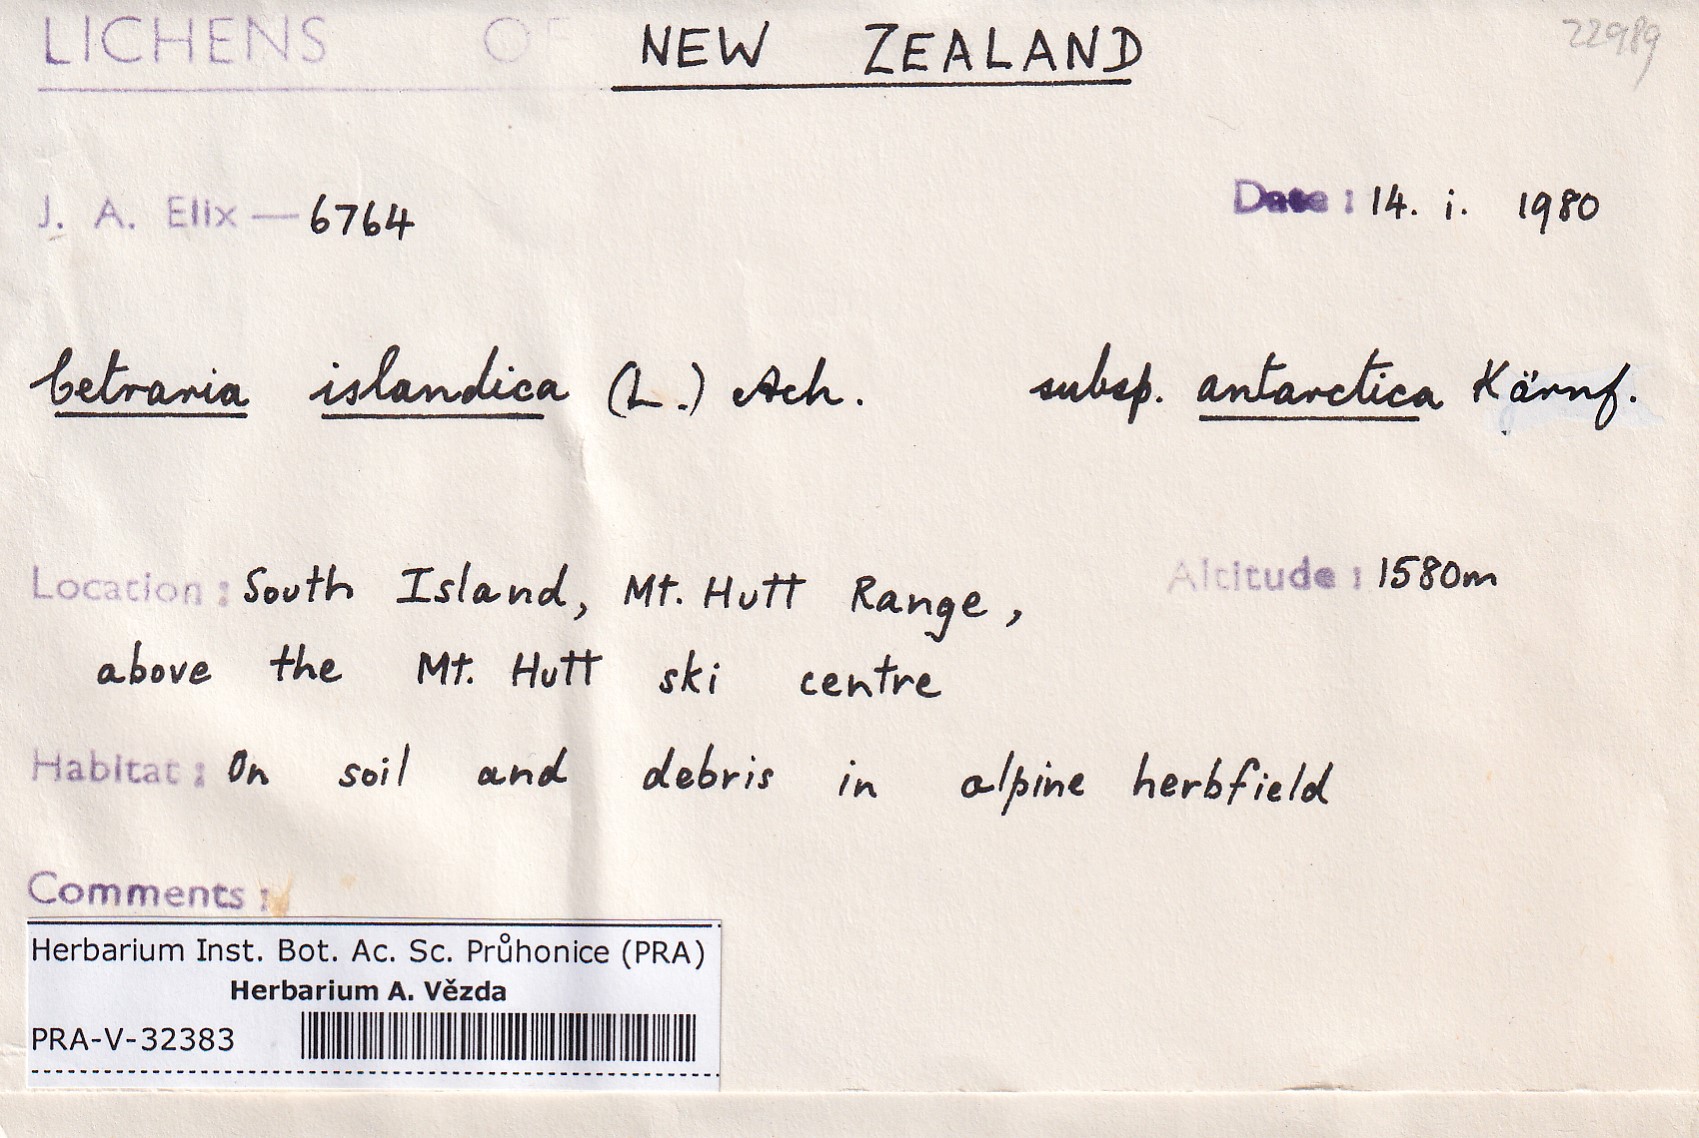 LICHENS OF NEW ZEALAND 22989
J. A. Elix — 6764 Date: 14. i. 1980
Cetraria islandica (L.) Ach. subsp. antarctica Kärnf.
Location: South Island, Mt. Hutt Range, Altitude: 1580m
above the Mt. Hutt ski centre
Habitat: On soil and debris in alpine herbfield
Comments:
Herbarium Inst. Bot. Ac. Sc. Průhonice (PRA)
Herbarium A. Vězda
PRA-V-32383